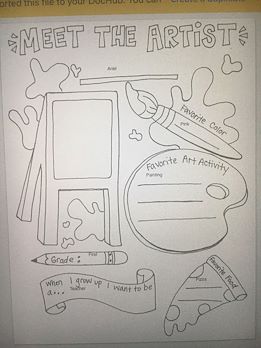 orted this file to your DocHub. You can
MEET THE ARTIST
Ariel
Favorite Color
Pink
Favorite Art Activity
Painting
Grade:
First
when I grow up I want to be
a...
Teacher
Favorite Food
Pizza